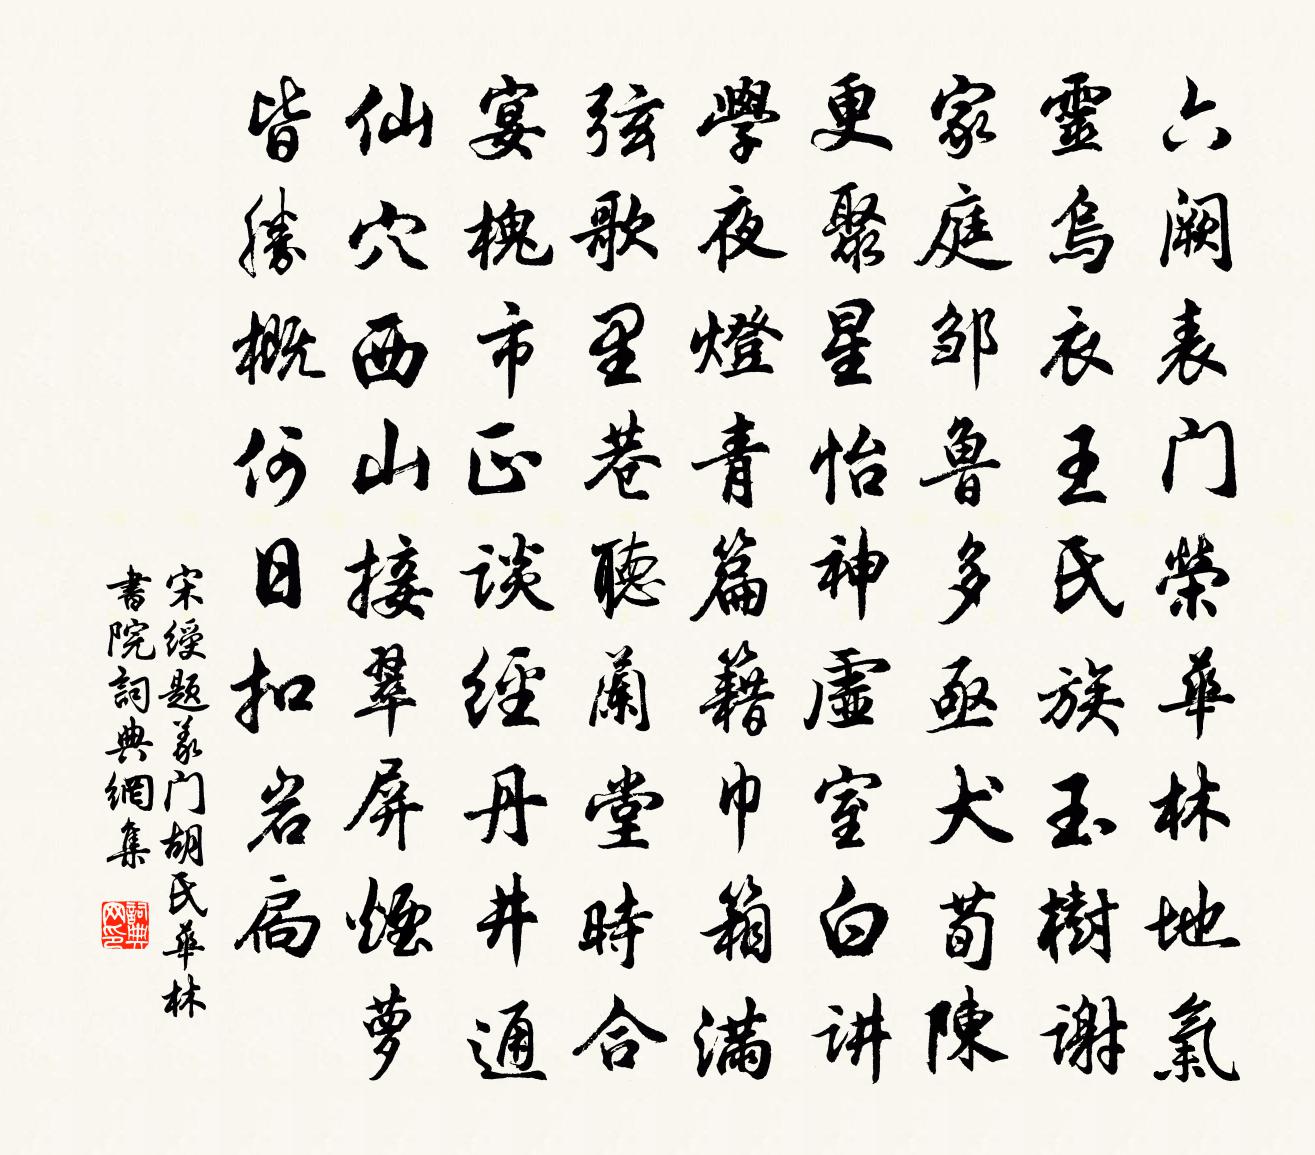 六阙表门榮華林地氣
靈烏衣王氏族玉樹谢
家庭邹鲁多亟犬荀陳
更聚星怡神虚室白讲
學夜燈青篇籍巾箱满
弦歌里巷聽蘭堂時合
宴槐市正谈經丹井通
仙穴西山接翠屏煙萝
皆勝概何日扣岩扃
宋綬题義门胡氏華林
書院詞典網集
詞典网印